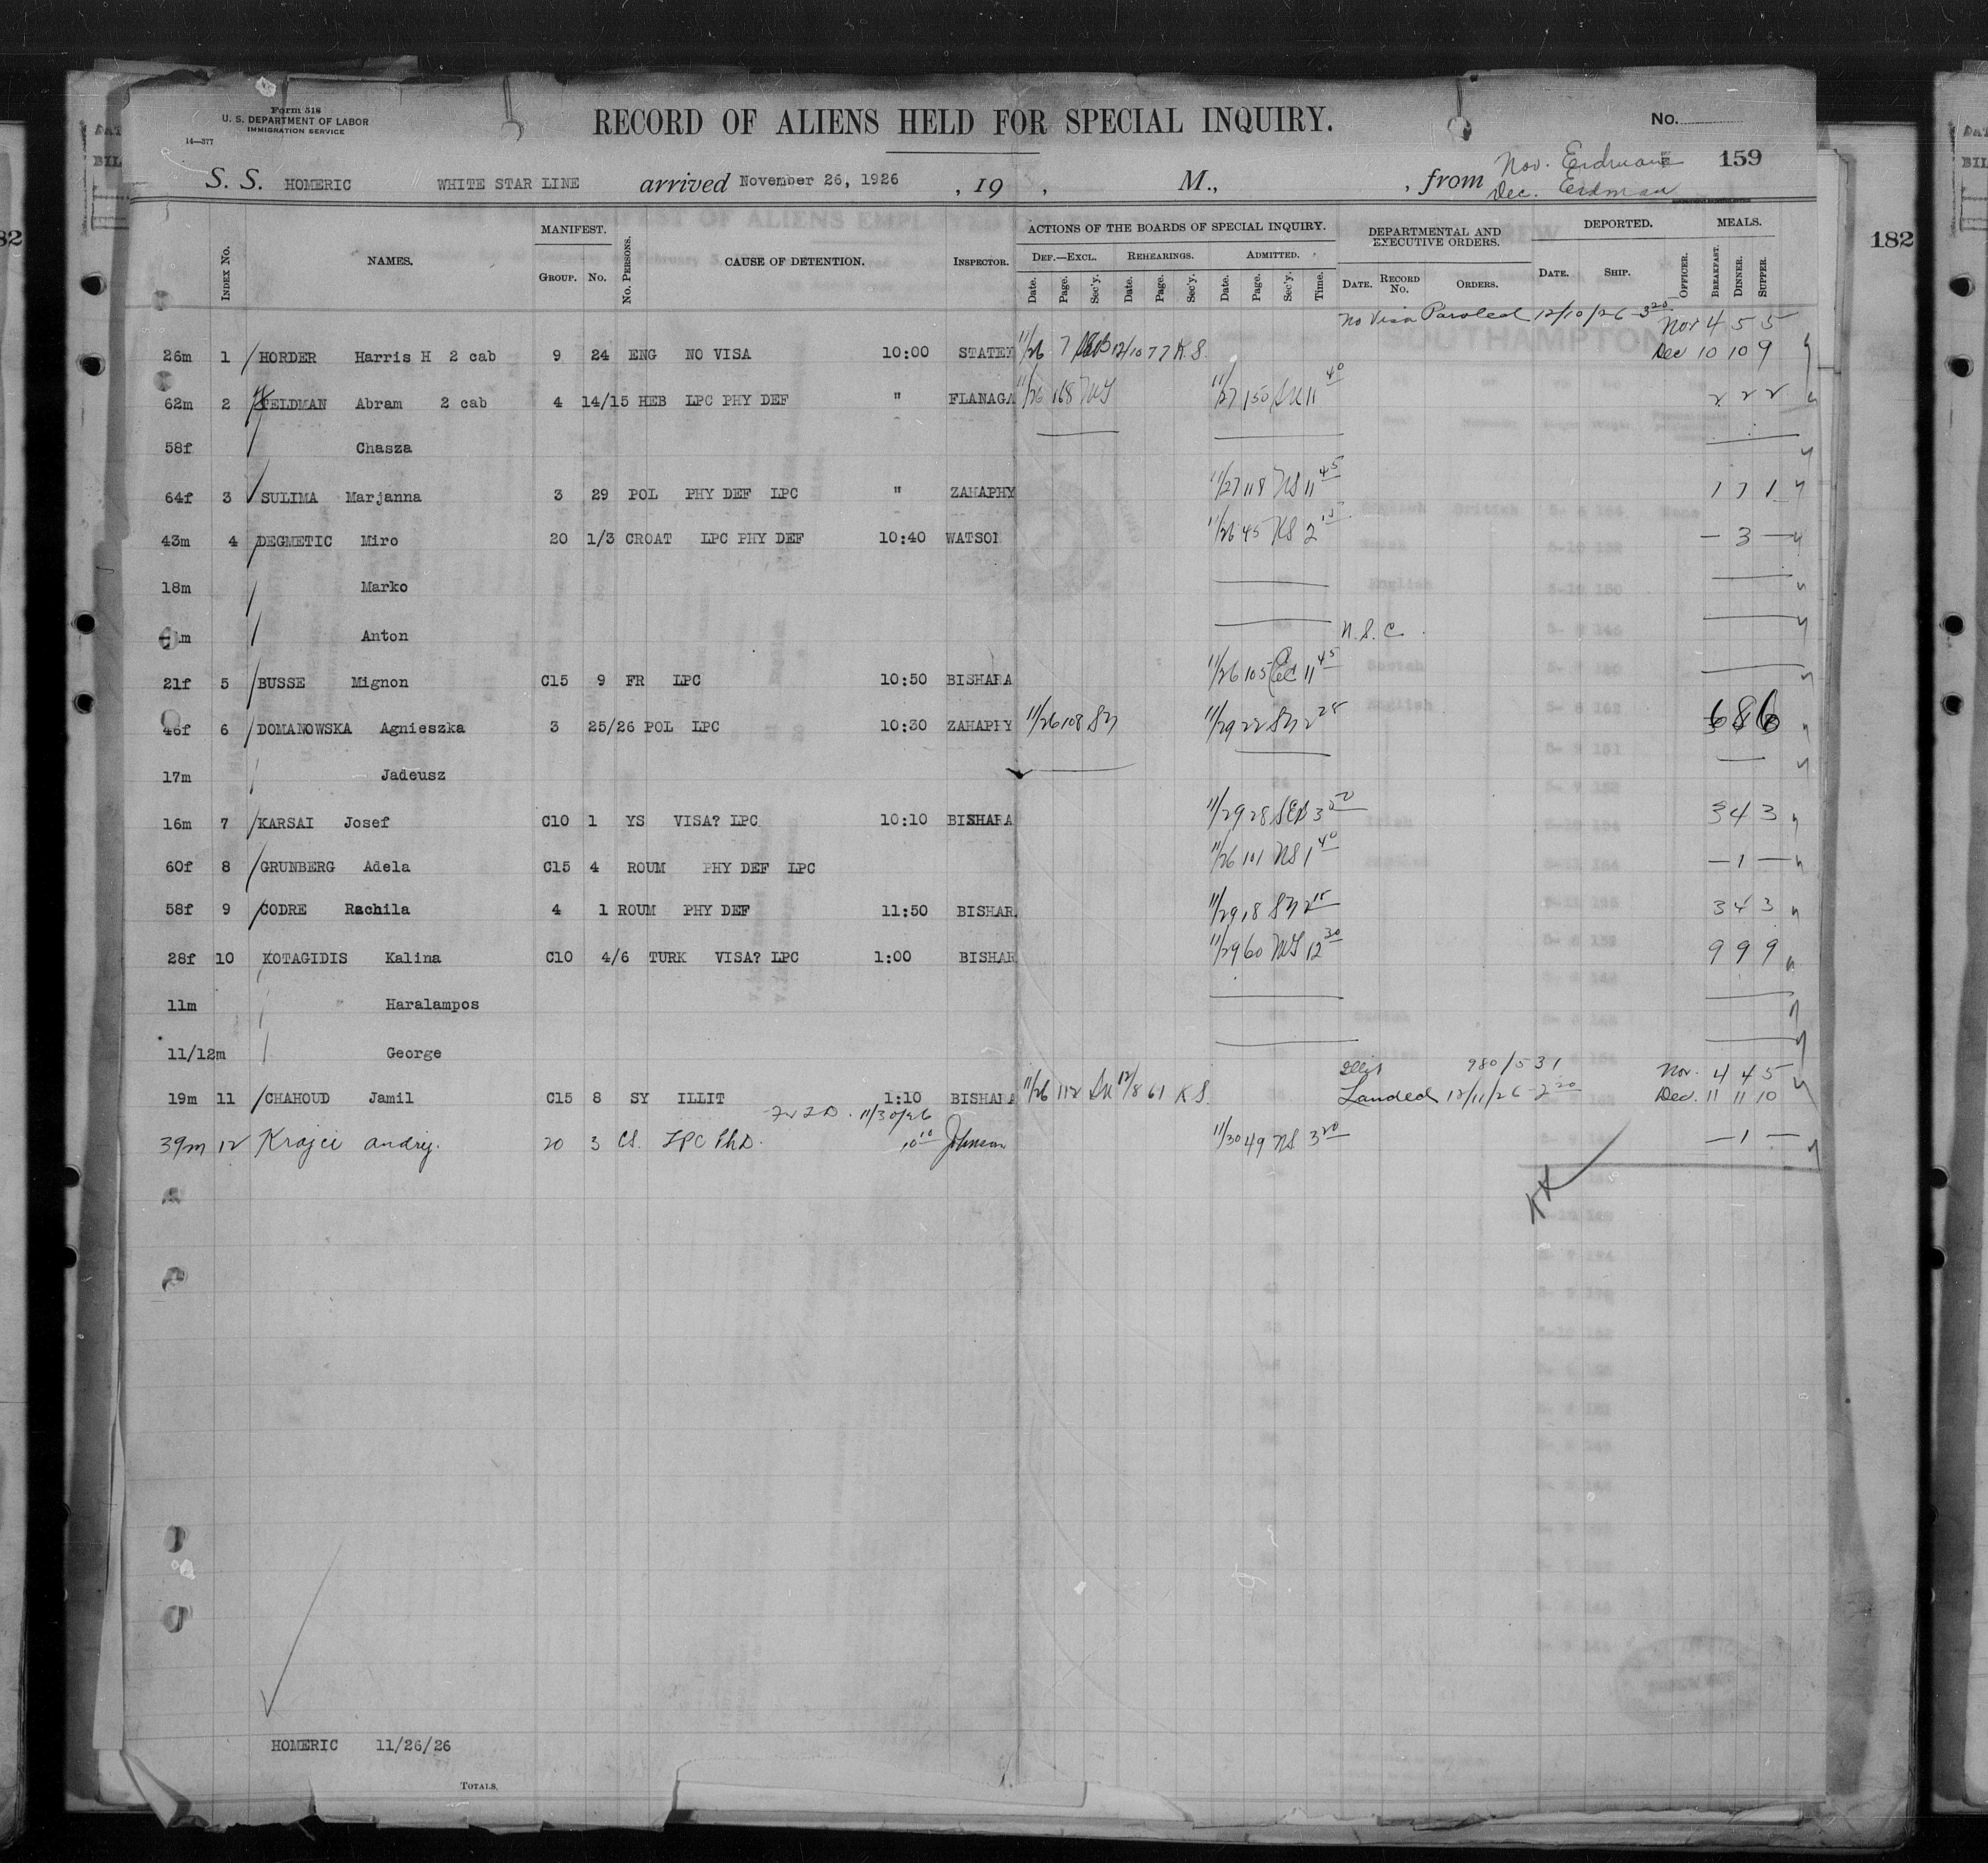 Form 518
U. S. DEPARTMENT OF LABOR
IMMIGRATION SERVICE
14—377
RECORD OF ALIENS HELD FOR SPECIAL INQUIRY.
No.
159
S. S. HOMERIC WHITE STAR LINE arrived November 26, 1926 , 19 , M., , from Nov. Erdman
Dec. Erdman
INDEX No. NAMES. MANIFEST. GROUP. No. No. PERSONS. CAUSE OF DETENTION. INSPECTOR. ACTIONS OF THE BOARDS OF SPECIAL INQUIRY. DEPARTMENTAL AND EXECUTIVE ORDERS. DEPORTED. MEALS.
DEF.—EXCL. REHEARINGS. ADMITTED.
Date. Page. Sec'y. Date. Page. Sec'y. Date. Page. Sec'y. Time. DATE. RECORD No. ORDERS. DATE. SHIP. OFFICER. BREAKFAST. DINNER. SUPPER.
No Visa Paroled 12/10/26 3 20 Nov 4 5 5
26m 1 HORDER Harris H 2 cab 9 24 ENG NO VISA 10:00 STATEY 11/26 7 12/10 77 K.S. Dec 10 10 9
62m 2 FELDMAN Abram 2 cab 4 14/15 HEB LPC PHY DEF " FLANAGA 11/26 168 11/27 150 11 40 2 2 2
58f Chasza
64f 3 SULIMA Marjanna 3 29 POL PHY DEF LPC " ZAHAPHY 11/27 118 NS 11 45 1 1 1
43m 4 DEGMETIC Miro 20 1/3 CROAT LPC PHY DEF 10:40 WATSON 11/26 45 KS 2 — 3 —
18m Marko
m Anton N.S.C.
21f 5 BUSSE Mignon C15 9 FR LPC 10:50 BISHARA 11/26 105 11 45
46f 6 DOMANOWSKA Agnieszka 3 25/26 POL LPC 10:30 ZAHAPHY 11/26 108 11/29 22 2 25 6 8 6
17m Jadeusz
16m 7 KARSAI Josef C10 1 YS VISA? LPC 10:10 BISHARA 11/29 28 3 3 4 3
60f 8 GRUNBERG Adela C15 4 ROUM PHY DEF LPC 11/26 101 NS 1 40 — 1 —
58f 9 CODRE Rachila 4 1 ROUM PHY DEF 11:50 BISHAR 11/29 18 2 15 3 4 3
28f 10 KOTAGIDIS Kalina C10 4/6 TURK VISA? LPC 1:00 BISHAR 11/29 60 12 30 9 9 9
11m Haralampos
11/12m George
Illit 980/531 Nov. 4 4 5
19m 11 CHAHOUD Jamil C15 8 SY ILLIT 1:10 BISHARA 11/26 112 12/8 61 K.S. Landed 12/11/26 2 20 Dec. 11 11 10
11/30/26
39m 12 Krajci Andrij. 20 3 CS. LPC Ph.D. 10 10 Johnson 11/30 49 NS 3 20 — 1 —
HOMERIC 11/26/26
TOTALS,
182
82